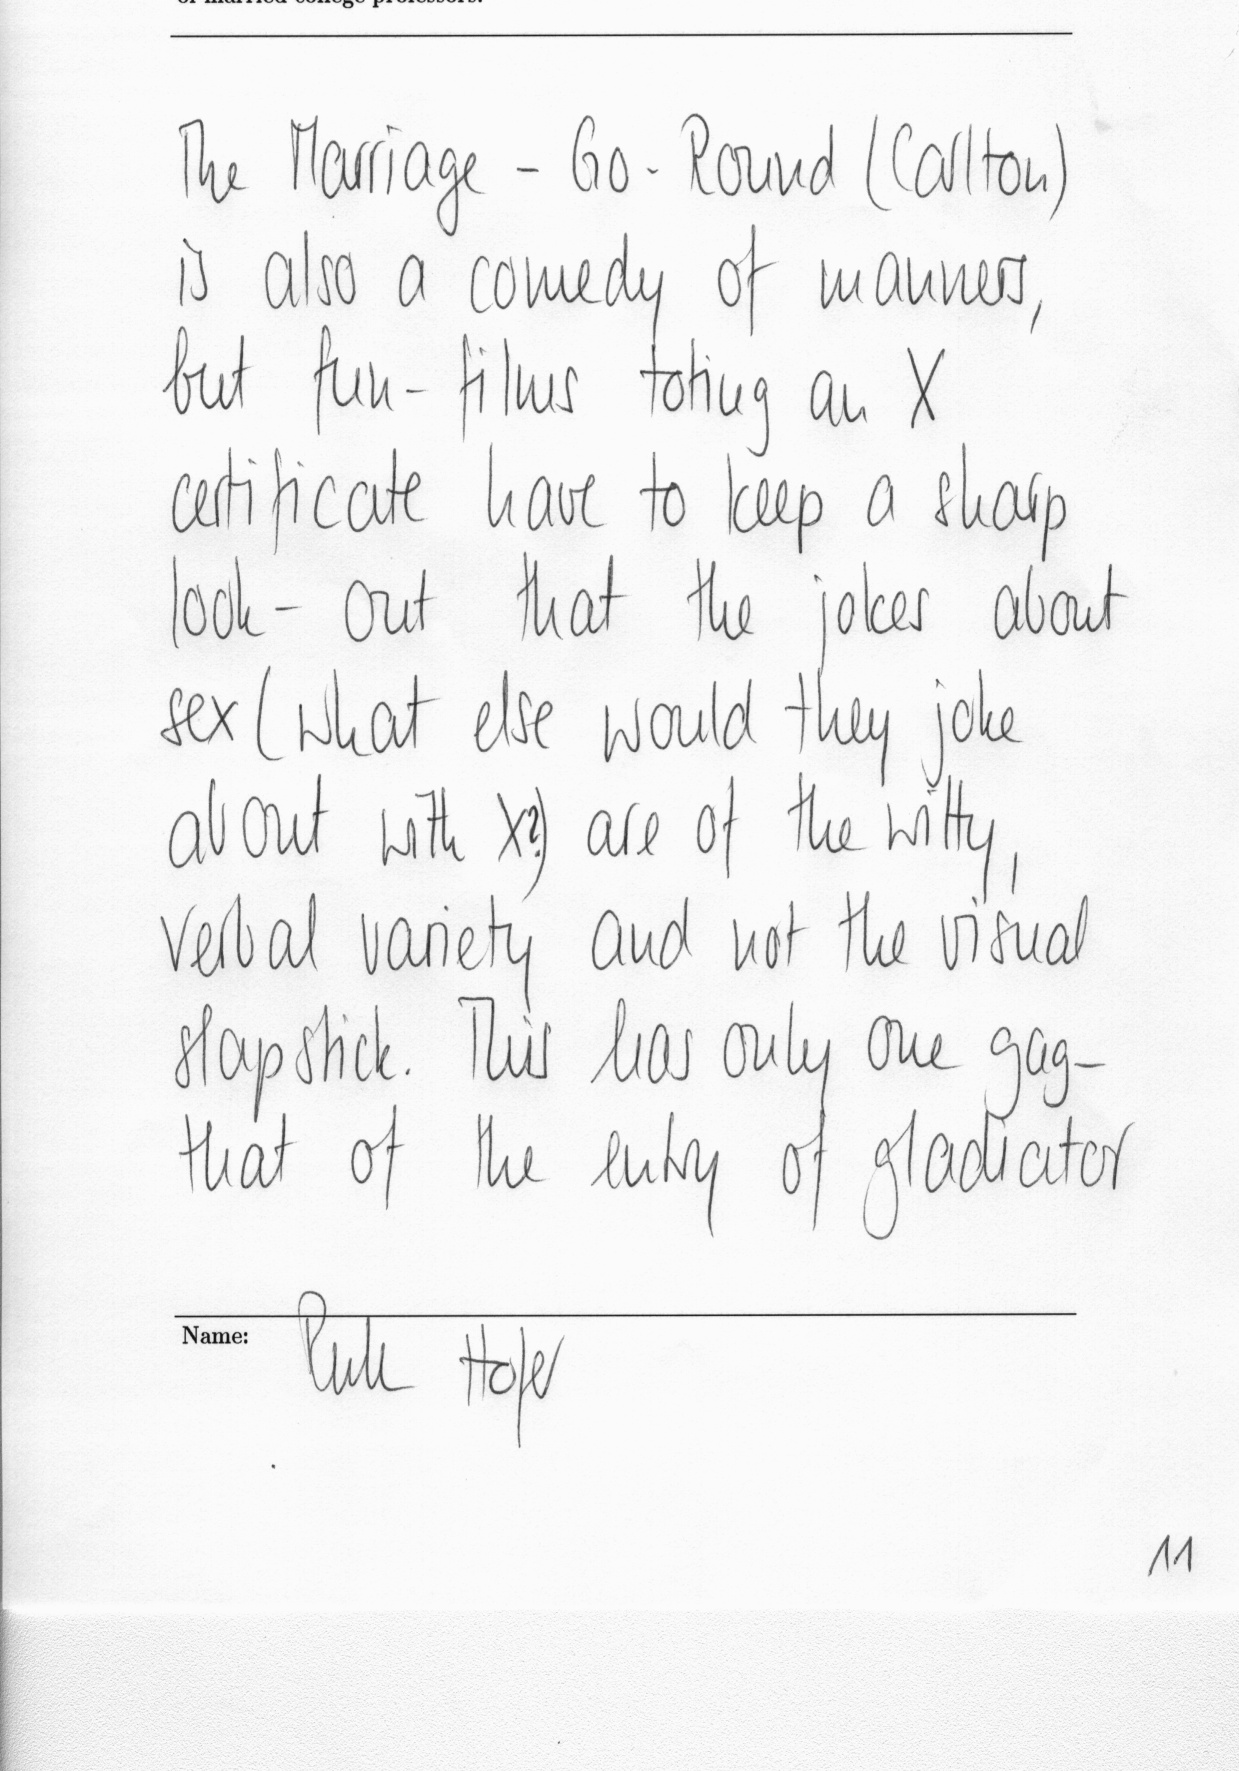 of married college professors.
The Marriage - Go - Round (Carlton)
is also a comedy of manners,
but fun - films toting an X
certificate have to keep a sharp
look - out that the jokes about
sex (what else would they joke
about with X?) are of the witty,
verbal variety and not the visual
slapstick. This has only one gag -
that of the entry of gladiator
Name: Hofer
11